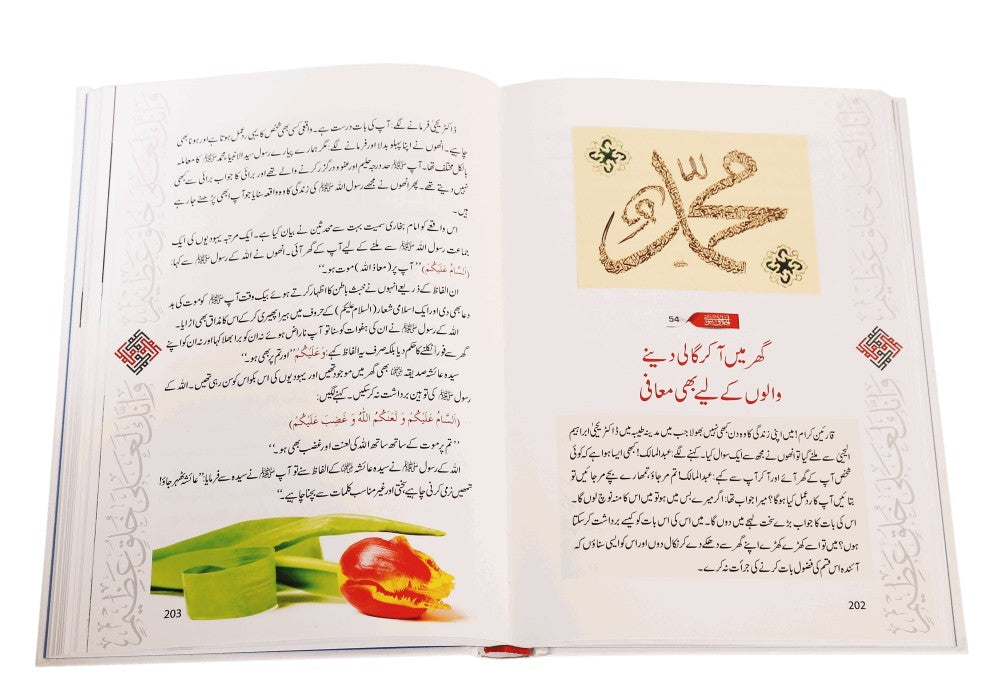 محمد
54
گھر میں آ کر گالی دینے
والوں کے لیے بھی معافی
قارئین کرام! میں اپنی زندگی کا وہ دن بھی نہیں بھولا جب میں مدینہ طیبہ میں ڈاکٹر یحییٰ ابراہیم
الیحییٰ سے ملنے گیا تو انھوں نے مجھ سے ایک سوال کیا۔ کہنے لگے: عبدالمالک! کبھی ایسا ہوا ہے کہ کوئی
شخص آپ کے گھر آئے اور آ کر آپ سے کہے: عبدالمالک تم مر جاؤ، تمھارے بچے مر جائیں تو
بتائیں آپ کا ردعمل کیا ہوگا؟ میرا جواب تھا: اگر میرے بس میں ہو تو میں اس کا منہ نوچ لوں گا۔
اس کی بات کا جواب بڑے سخت لہجے میں دوں گا۔ میں اس کی اس بات کو کیسے برداشت کر سکتا
ہوں؟ میں تو اسے کھڑے کھڑے اپنے گھر سے دھکے دے کر نکال دوں اور اس کو ایسی سناؤں کہ
آئندہ اس قسم کی فضول بات کرنے کی جرأت نہ کرے۔
202
ڈاکٹر یحییٰ فرمانے لگے: آپ کی بات درست ہے۔ واقعی کسی بھی شخص کا یہی ردعمل ہوتا ہے اور ہونا بھی
چاہیے۔ انھوں نے اپنا پہلو بدلا اور فرمانے لگے: مگر ہمارے پیارے رسول سید الانبیاء محمد ﷺ کا معاملہ
بالکل مختلف تھا۔ آپ ﷺ حد درجہ حلیم اور عفو و درگزر کرنے والے تھے اور برائی کا جواب برائی سے کبھی
نہیں دیتے تھے۔ پھر انھوں نے مجھے رسول اللہ ﷺ کی زندگی کا وہ واقعہ سنایا جو آپ ابھی پڑھنے جا رہے
ہیں۔
اس واقعے کو امام بخاری سمیت بہت سے محدثین نے بیان کیا ہے۔ ایک مرتبہ یہودیوں کی ایک
جماعت رسول اللہ ﷺ سے ملنے کے لیے آپ کے گھر آئی۔ انھوں نے اللہ کے رسول ﷺ سے کہا:
(اَلسَّامُ عَلَيْكُمْ) ’’آپ پر (معاذ اللہ) موت ہو۔‘‘
ان الفاظ کے ذریعے انہوں نے خبث باطن کا اظہار کرتے ہوئے بیک وقت آپ ﷺ کو موت کی بد
دعا بھی دی اور ایک اسلامی شعار (السلام علیکم) کے حروف میں ہیرا پھیری کر کے اس کا مذاق بھی اڑایا۔
اللہ کے رسول ﷺ نے ان کی ہفوات کو سنا تو آپ ناراض ہوئے نہ ان کو برا بھلا کہا اور نہ ان کو اپنے
گھر سے فوراً نکلنے کا حکم دیا بلکہ صرف یہ الفاظ کہے: وَعَلَيْكُمْ ’’اور تم پر بھی ہو۔‘‘
سیدہ عائشہ صدیقہ ؓ بھی گھر میں موجود تھیں اور یہودیوں کی اس بکواس کو سن رہی تھیں۔ اللہ کے
رسول ﷺ کی توہین برداشت نہ کر سکیں۔ کہنے لگیں:
(اَلسَّامُ عَلَيْكُمْ وَ لَعَنَكُمُ اللّٰهُ وَ غَضِبَ عَلَيْكُمْ)
’’تم پر موت کے ساتھ ساتھ اللہ کی لعنت اور غضب بھی ہو۔‘‘
اللہ کے رسول ﷺ نے سیدہ عائشہ ؓ کے الفاظ سنے تو آپ ﷺ نے سیدہ سے فرمایا: ’’عائشہ ٹھہر جاؤ!
تمھیں نرمی کرنی چاہیے، سختی اور غیر مناسب کلمات سے بچنا چاہیے۔‘‘
203
وإنك لعلى خلق عظيم